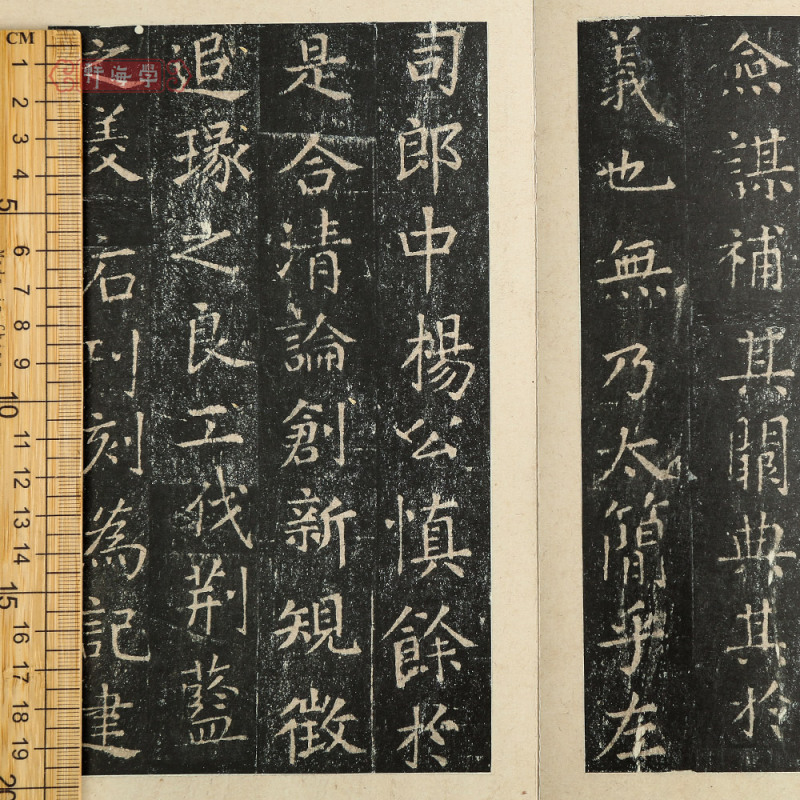 僉謀補其闕典其扵
義也無乃太簡乎左
司郎中楊公慎餘扵
是合清論創新規徵
追琢之良工伐荊藍
之美石刊刻為記建
軒海學
CM
1
2
3
4
5
6
7
8
9
10
11
12
13
14
15
16
17
18
19
20